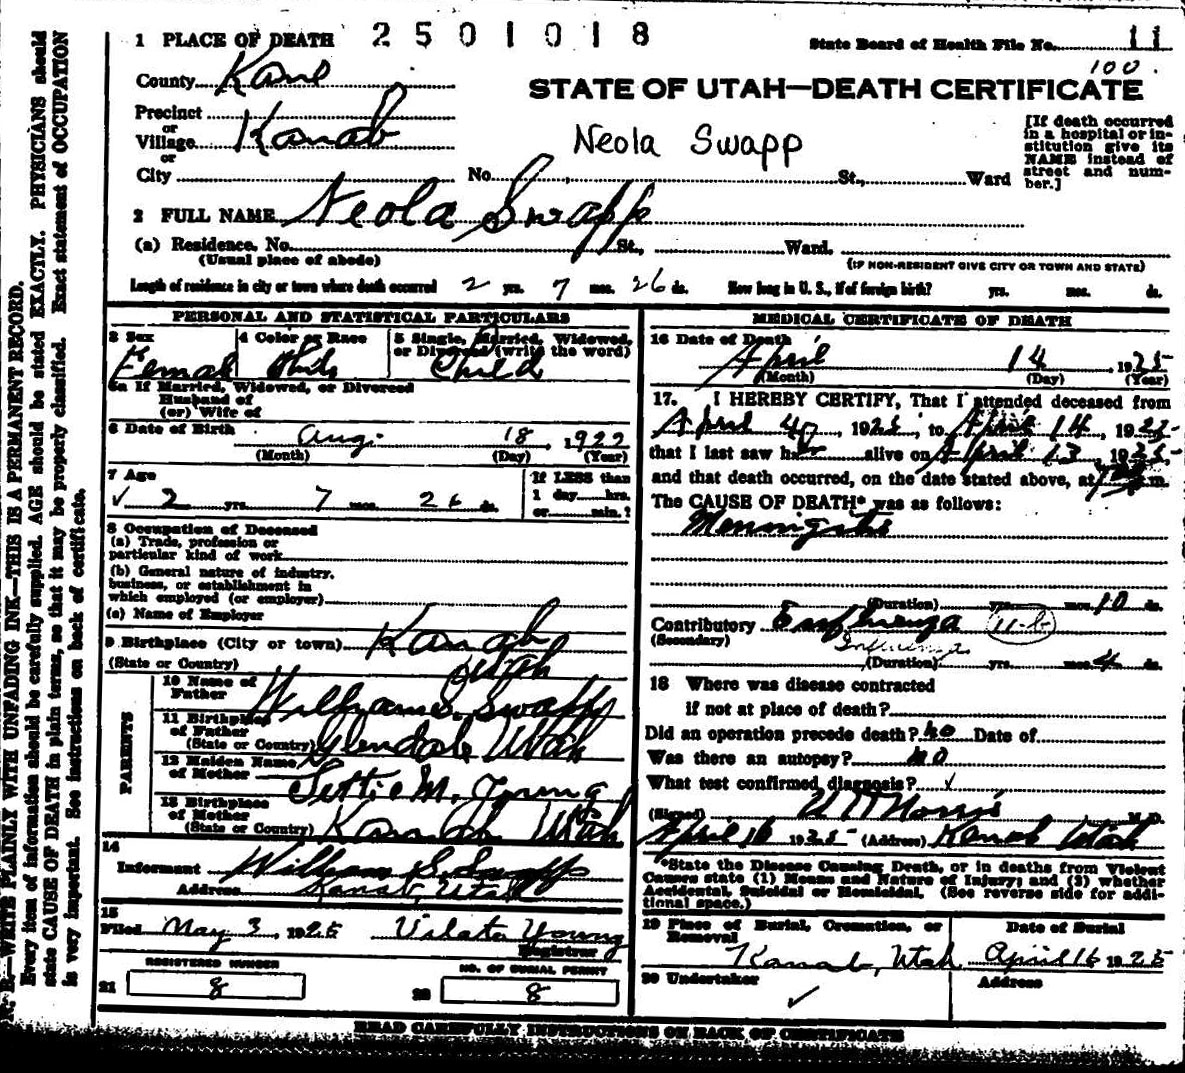 1 PLACE OF DEATH 2501018
State Board of Health File No. 11
100.
County Kane
STATE OF UTAH—DEATH CERTIFICATE
Precinct
or
Village Kanab
or
City No. St., Ward
Neola Swapp
[If death occurred
in a hospital or in-
stitution give its
NAME instead of
street and num-
ber.]
2 FULL NAME Neola Swapp
(a) Residence, No. St., Ward.
(Usual place of abode)
(IF NON-RESIDENT GIVE CITY OR TOWN AND STATE)
Length of residence in city or town where death occurred 2 yrs. 7 mos. 26 ds. How long in U. S., if of foreign birth? yrs. mos. ds.
PERSONAL AND STATISTICAL PARTICULARS
3 Sex 4 Color or Race 5 Single, Married, Widowed,
or Divorced (write the word)
Femal White Child
5a If Married, Widowed, or Divorced
Husband of
(or) Wife of
6 Date of Birth Aug. 18, 1922
(Month) (Day) (Year)
7 Age If LESS than
2 yrs. 7 mos. 26 ds. 1 day hrs.
or min.?
8 Occupation of Deceased
(a) Trade, profession or
particular kind of work
(b) General nature of industry,
business, or establishment in
which employed (or employer)
(c) Name of Employer
9 Birthplace (City or town) Kanab
(State or Country) Utah
PARENTS
10 Name of
Father William S. Swapp
11 Birthplace
of Father
(State or Country) Glendale Utah
12 Maiden Name
of Mother Lettie M. Young
13 Birthplace
of Mother
(State or Country) Kanab Utah
14
Informant William S. Swapp
Address Kanab, Utah
15
Filed May 3, 1925 Vilate Young
Registrar
REGISTERED NUMBER NO. OF BURIAL PERMIT
21 8 22 8
MEDICAL CERTIFICATE OF DEATH
16 Date of Death
April 14 1925
(Month) (Day) (Year)
17. I HEREBY CERTIFY, That I attended deceased from
April 4, 1925, to April 14, 1925
that I last saw her alive on April 13, 1925,
and that death occurred, on the date stated above, at m.
The CAUSE OF DEATH* was as follows:
Menningitis
(Duration) yrs. mos. 10 ds.
Contributory Enfluenza 11-b
(Secondary) Influenza
(Duration) yrs. mos. 4 ds.
18 Where was disease contracted
if not at place of death?
Did an operation precede death? no Date of
Was there an autopsy? no
What test confirmed diagnosis?
(Signed) Norris M. D.
April 16 1925 (Address) Kanab Utah
*State the Disease Causing Death, or in deaths from Violent
Causes state (1) Means and Nature of Injury; and (2) whether
Accidental, Suicidal or Homicidal. (See reverse side for addi-
tional space.)
19 Place of Burial, Cremation, or Date of Burial
Removal
Kanab, Utah April 16 1925
20 Undertaker Address
READ CAREFULLY INSTRUCTIONS ON BACK OF CERTIFICATE
N. B.—WRITE PLAINLY WITH UNFADING INK—THIS IS A PERMANENT RECORD.
Every item of information should be carefully supplied. AGE should be stated EXACTLY. PHYSICIANS should
state CAUSE OF DEATH in plain terms, so that it may be properly classified. Exact statement of OCCUPATION
is very important. See instructions on back of certificate.